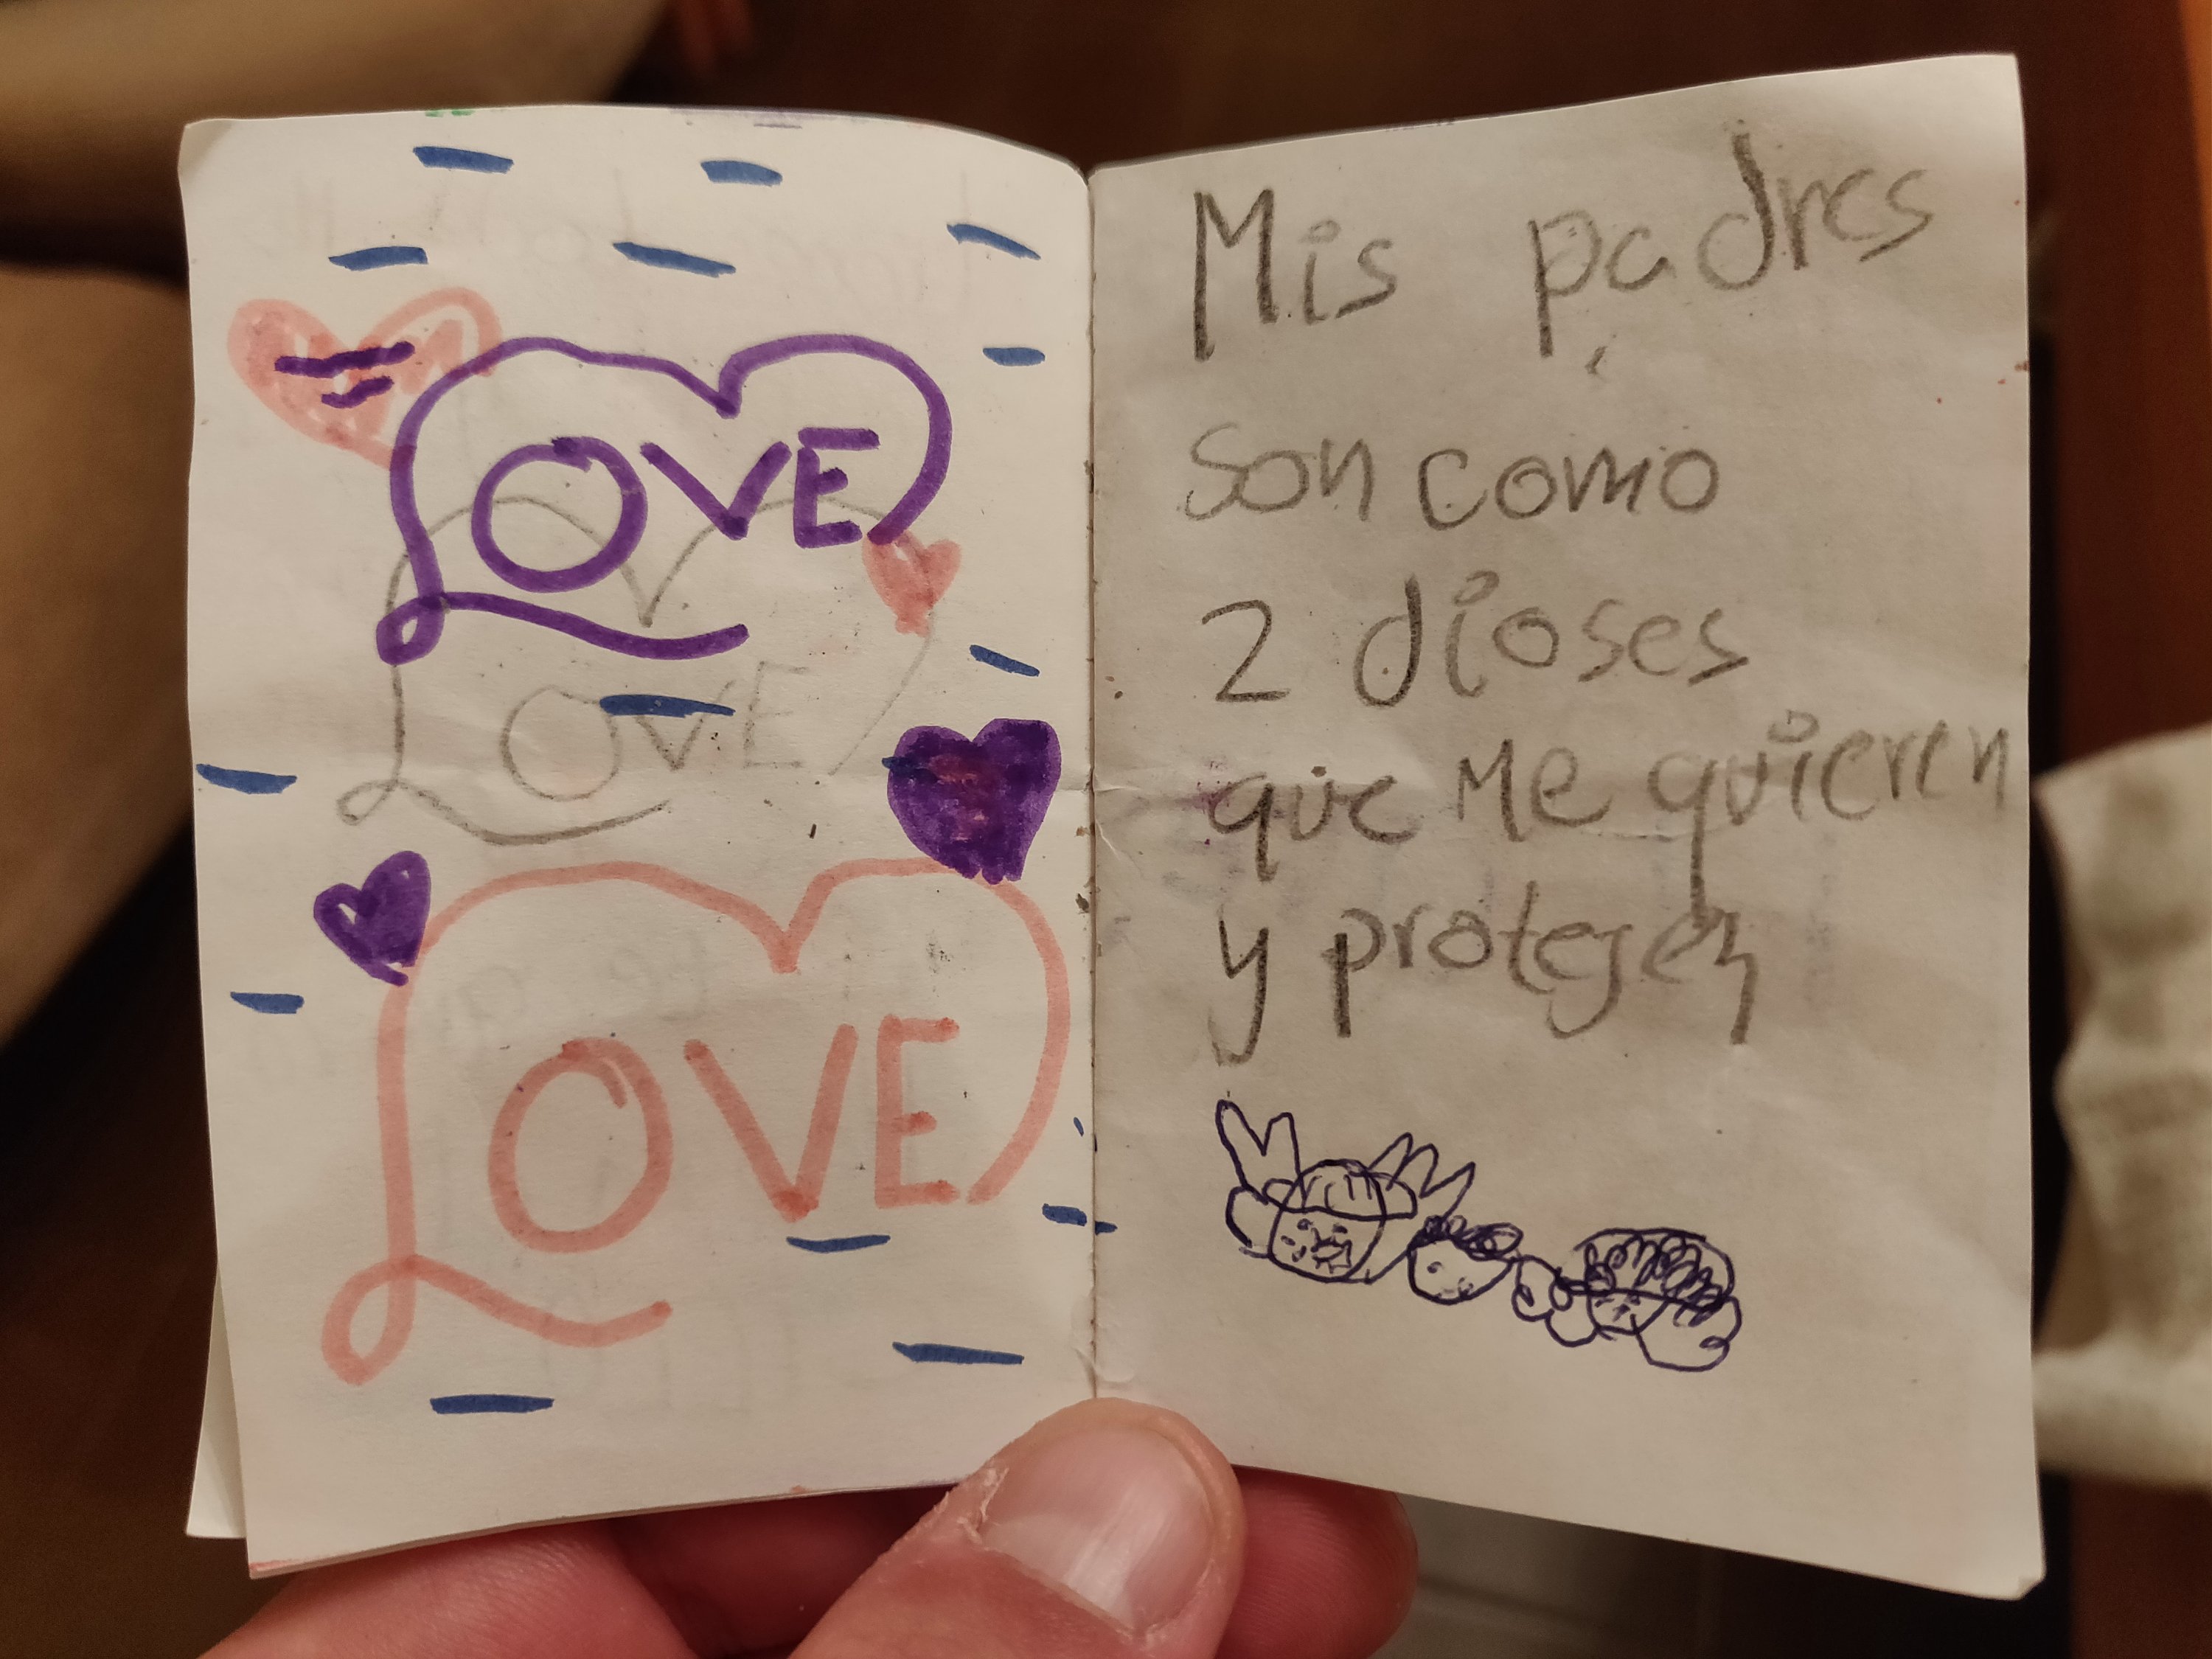 LOVE
LOVE
LOVE
Mis padres
son como
2 dioses
que me quieren
y protegen